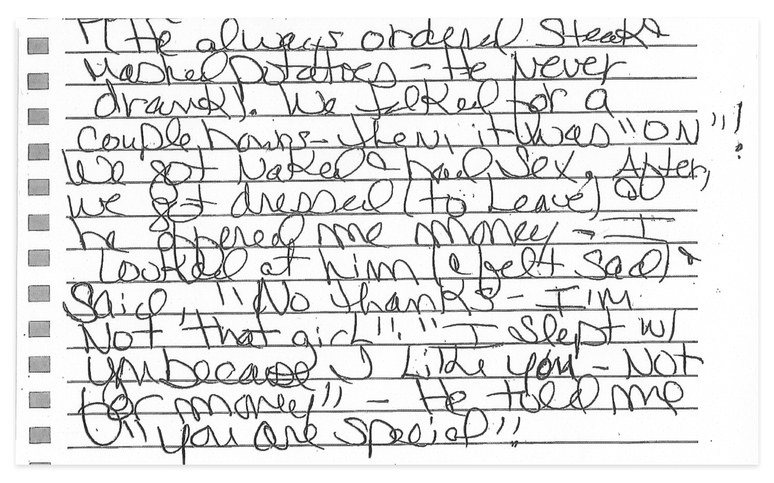 "(He always ordered Steak &
Mashed Potatoes - He Never
drank). We talked for a
couple hours - then, it was "ON"!
We got Naked & had Sex. After,
we got dressed (to Leave) &
he offered me money - I
Looked at him (& felt sad) &
said, "No thanks - I'm
Not 'that girl'". "I slept w/
you because I Like you - Not
for money" - He told me
"you are special"